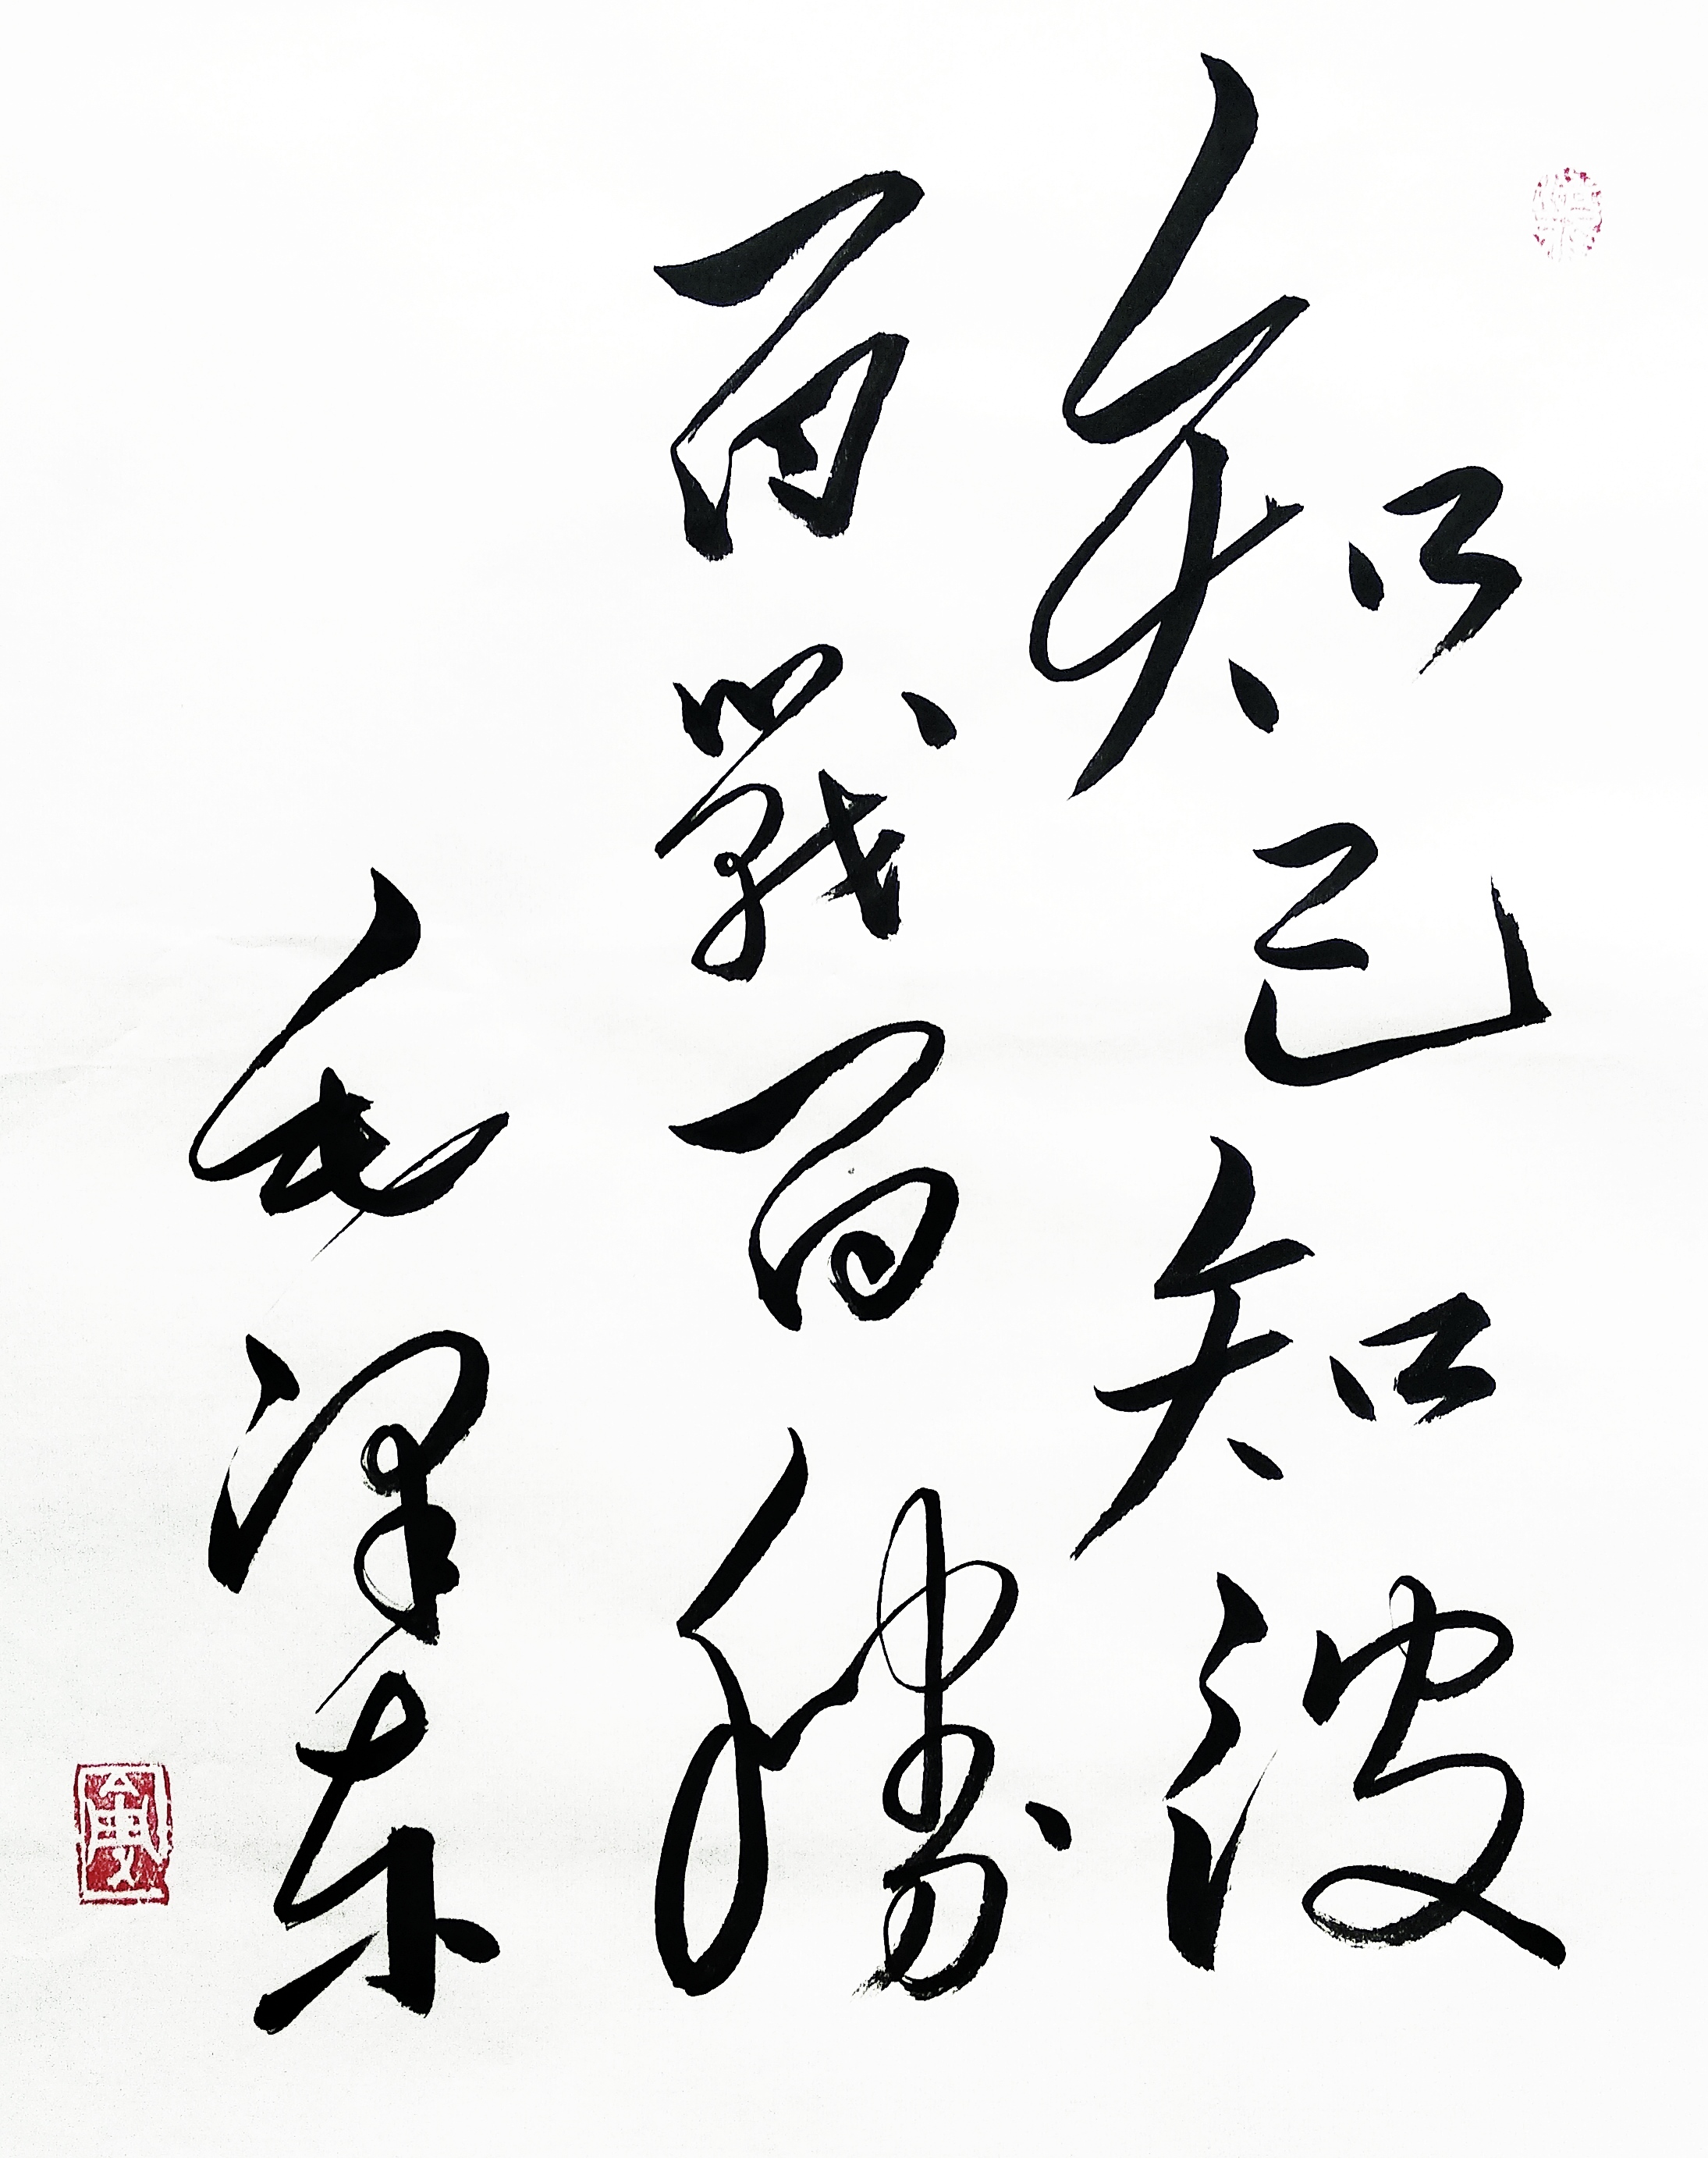 知己知彼
百戰百勝
毛澤东